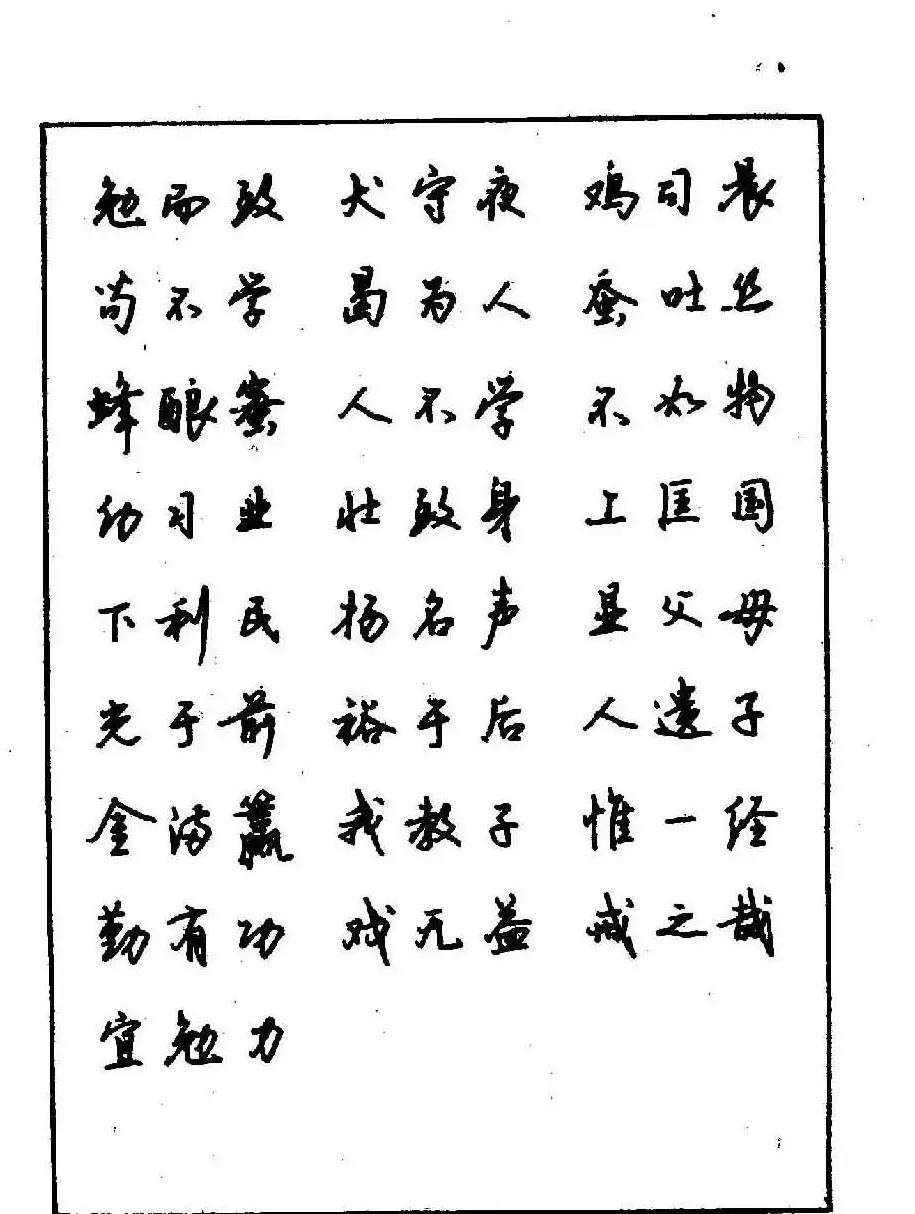 勉而致 犬守夜 鸡司晨
苟不学 曷为人 蚕吐丝
蜂酿蜜 人不学 不如物
幼习业 壮致身 上匡国
下利民 扬名声 显父母
光于前 裕于后 人遗子
金满籯 我教子 惟一经
勤有功 戏无益 戒之哉
宜勉力